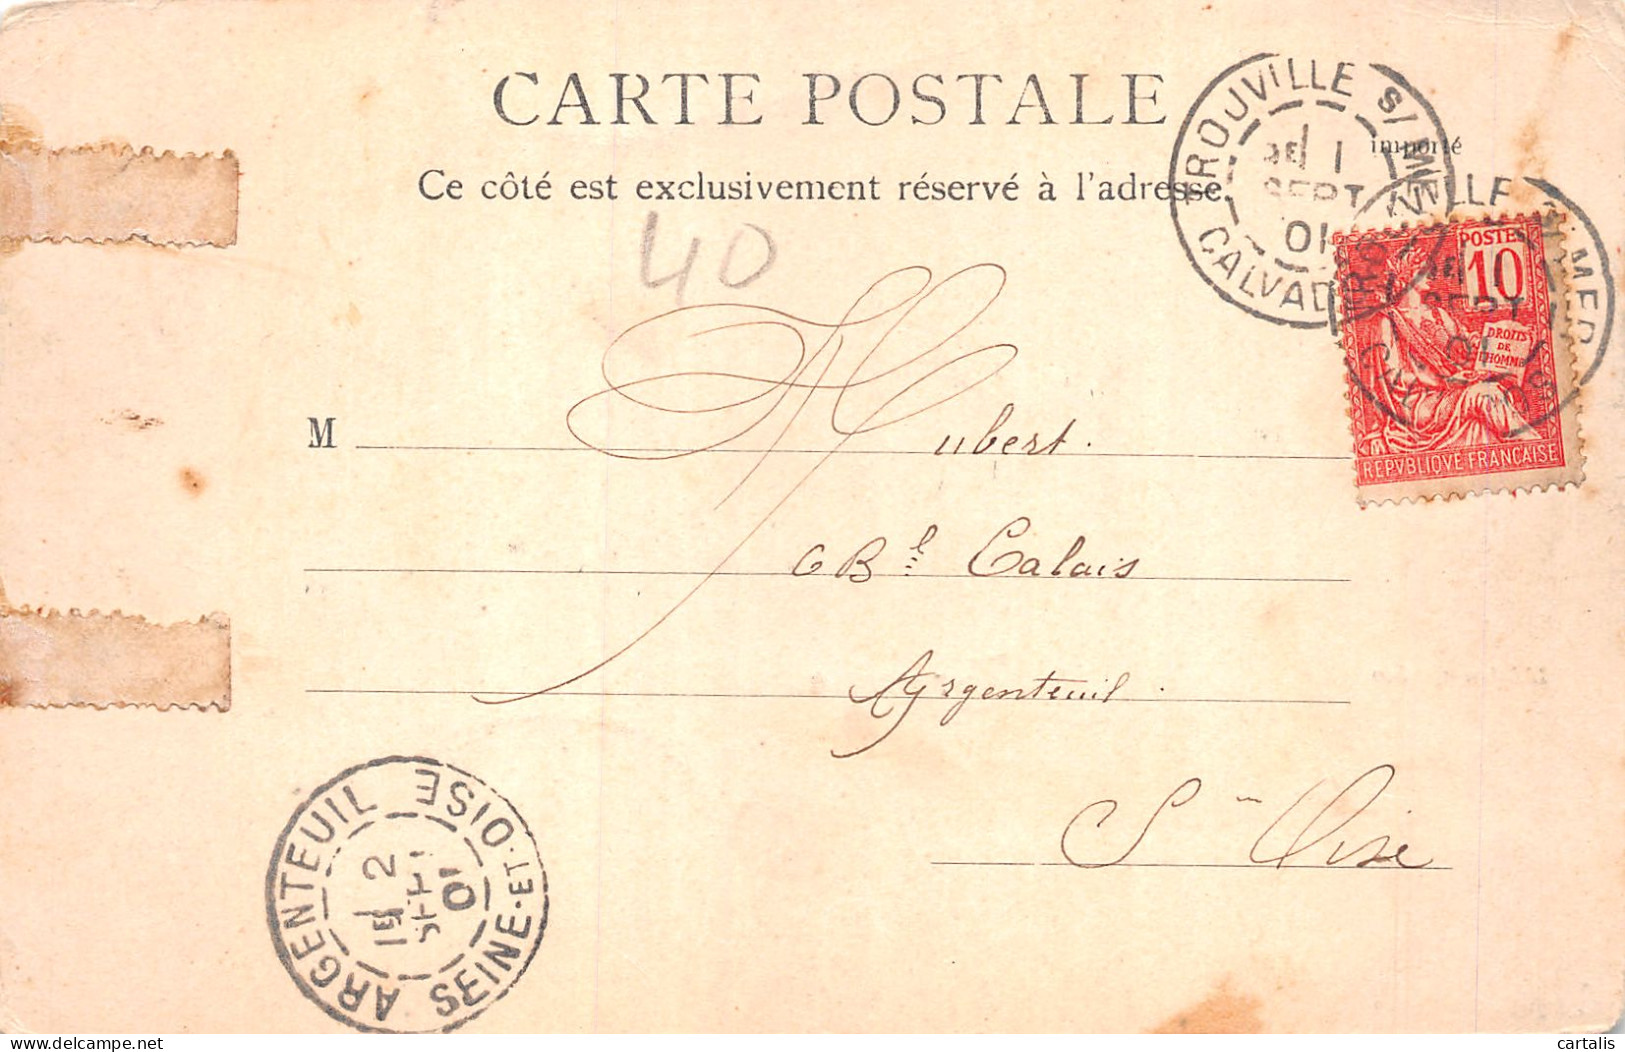 CARTE POSTALE
importé
Ce côté est exclusivement réservé à l'adresse.
40
TROUVILLE S/ MER
1
SEPT
01
CALVADOS
TROUVILLE S/ MER
1
SEPT
01
POSTES
10
DROITS
DE
L'HOMME
REPVBLIQVE FRANÇAISE
M Hubert.
6 Bl Calais
Argenteuil.
S. Oise
ARGENTEUIL
2
SEPT
01
SEINE-ET-OISE
cartalis